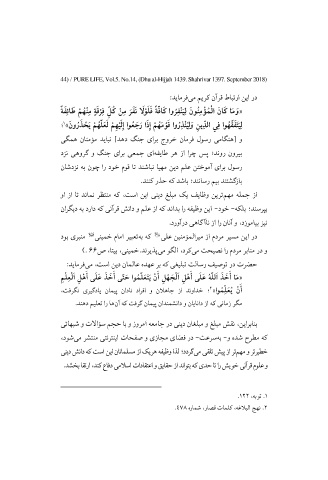 44) / PURE LIFE, Vol.5. No.14, (Dhu al-Hijjah 1439. Shahrivar 1397. September 2018)
در این ارتباط قرآن کریم می‌فرماید:
«وَمَا كَانَ الْمُؤْمِنُونَ لِيَنْفِرُوا كَافَّةً فَلَوْلَا نَفَرَ مِنْ كُلِّ فِرْقَةٍ مِنْهُمْ طَائِفَةٌ
لِيَتَفَقَّهُوا فِي الدِّينِ وَلِيُنْذِرُوا قَوْمَهُمْ إِذَا رَجَعُوا إِلَيْهِمْ لَعَلَّهُمْ يَحْذَرُونَ»۱؛
و [هنگامی رسول فرمان خروج برای جنگ دهد] نباید مؤمنان همگی
بیرون روند؛ پس چرا از هر طایفه‌ای جمعی برای جنگ و گروهی نزد
رسول برای آموختن علم دین مهیا نباشند تا قوم خود را چون به نزدشان
بازگشتند بیم رسانند؛ باشد که حذر کنند.
از جمله مهم‌ترین وظایف یک مبلغ دینی این است، که منتظر نماند تا از او
بپرسند؛ بلکه- خود- این وظیفه را بداند که از علم و دانش قرآنی که دارد به دیگران
نیز بیاموزد، و آنان را از ناآگاهی درآورد.
در این مسیر مردم از میرالمؤمنین علی که به‌تعبیر امام خمینی منبری بود
و در منابر مردم را نصیحت می‌کرد، الگو می‌پذیرند. (خمینی، بیتا، ص۶۶.)
حضرت در توصیف رسالت تبلیغی که بر عهده عالمان دین است، می‌فرماید:
«مَا أَخَذَ اللَّهُ عَلَى أَهْلِ الْجَهْلِ أَنْ يَتَعَلَّمُوا حَتَّى أَخَذَ عَلَى أَهْلِ الْعِلْمِ
أَنْ يُعَلِّمُوا»۲؛ خداوند از جاهلان و افراد نادان پیمان یادگیری نگرفت،
مگر زمانی که از دانایان و دانشمندان پیمان گرفت که آن‌ها را تعلیم دهند.
بنابراین، نقش مبلغ و مبلغان دینی در جامعه امروز و با حجم سوالات و شبهاتی
که مطرح شده و- به‌سرعت- در فضای مجازی و صفحات اینترنتی منتشر می‌شود،
خطیرتر و مهم‌تر از پیش تلقی می‌گردد؛ لذا وظیفه هریک از مسلمانان این است که دانش دینی
و علوم قرآنی خویش را تا حدی که بتواند از حقایق و اعتقادات اسلامی دفاع کند، ارتقا بخشد.
۱. توبه، ۱۲۲.
۲. نهج البلاغه، کلمات قصار، شماره ۴۷۸.